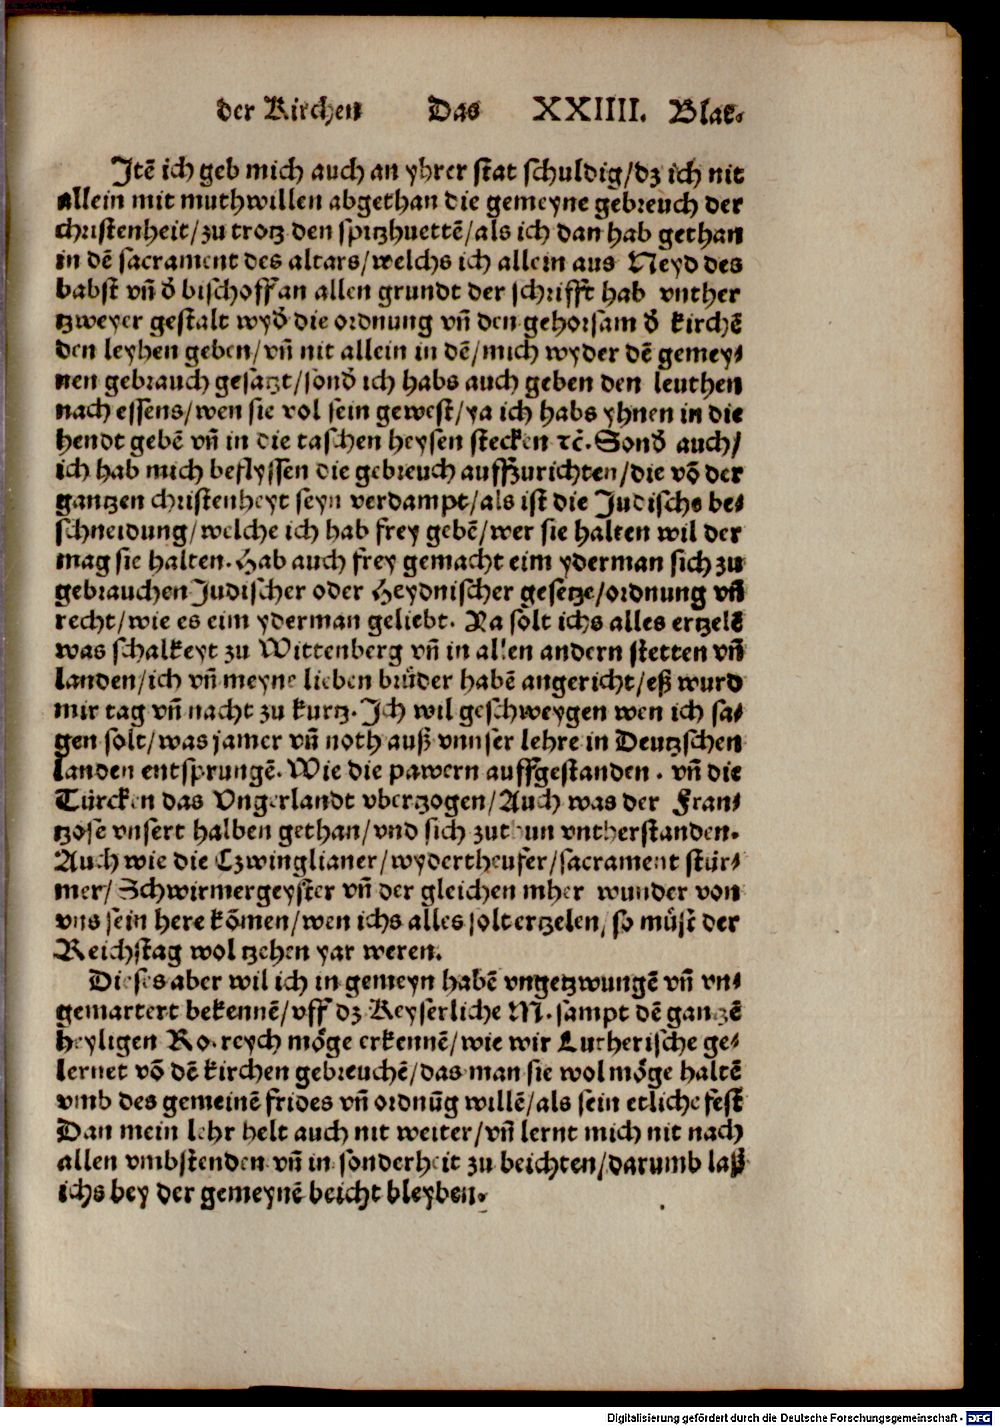 der Kirchen Das XXIIII. Blat.
Itē ich geb mich auch an yhrer stat schuldig/dz ich nit
allein mit muthwillen abgethan die gemeyne gebreuch der
christenheit/zu trotz den spitzhuettē/als ich dan hab gethan
in dē sacrament des altars/welchs ich allein aus Neyd des
babst vn̄ d̄ bischoff an allen grundt der schrifft hab vnther
tzweyer gestalt wyd̄ die ordnung vn̄ den gehorsam d̄ kirchē
den leyhen geben/vn̄ nit allein in dē/mich wyder dē gemey⸗
nen gebrauch gesatzt/sond̄ ich habs auch geben den leuthen
nach essens/wen sie vol sein gewest/ya ich habs yhnen in die
hendt gebē vn̄ in die taschen heysen stecken ꝛc̄. Sond̄ auch/
ich hab mich beflyssen die gebreuch auffzurichten/die vō der
gantzen christenheyt seyn verdampt/als ist die Judische be⸗
schneidung/welche ich hab frey gebē/wer sie halten wil der
mag sie halten. Hab auch frey gemacht eim yderman sich zu
gebrauchen Judischer oder Heydnischer gesetze/ordnung vn̄
recht/wie es eim yderman geliebt. Ya solt ichs alles ertzelē
was schalkeyt zu Wittenberg vn̄ in allen andern stetten vn̄
landen/ich vn̄ meyne lieben brüder habē angericht/eß wurd
mir tag vn̄ nacht zu kurtz. Ich wil geschweygen wen ich sa⸗
gen solt/was jamer vn̄ noth auß vnnser lehre in Deutzschen
landen entsprungē. Wie die pawern auffgestanden. vn̄ die
Türcken das Vngerlandt vbertzogen/Auch was der Fran⸗
tzose vnsert halben gethan/vnd sich zuthun vntherstanden.
Auch wie die Czwinglianer/wydertheufer/sacrament stür⸗
mer/Schwirmergeyster vn̄ der gleichen mher wunder von
vns sein here kōmen/wen ichs alles solt ertzelen/so müst der
Reichstag wol tzehen yar weren.
Dieses aber wil ich in gemeyn habē vngetzwungē vn̄ vn⸗
gemartert bekennē/vff dz Keyserliche M. sampt dē gantzē
heyligen Ro. reych möge erkennē/wie wir Lutherische ge⸗
lernet vō dē kirchen gebreuchē/das man sie wol möge haltē
vmb des gemeinē frides vn̄ ordnūg willē/als sein etliche fest
Dan mein lehr helt auch nit weiter/vn̄ lernt mich nit nach
allen vmbstenden vn̄ in sonderheit zu beichten/darumb laß
ichs bey der gemeynē beicht bleyben.
Digitalisierung gefördert durch die Deutsche Forschungsgemeinschaft - DFG